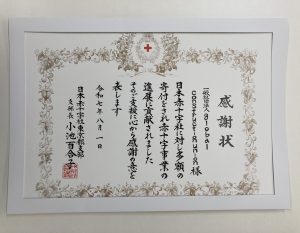 感謝状
一般社団法人global
様
日本赤十字社に対し多額の
寄付をされ赤十字事業の
進展に貢献されました
そのご支援に心から感謝の意を
表します
令和七年八月一日
日本赤十字社東京都支部
支部長 小池百合子